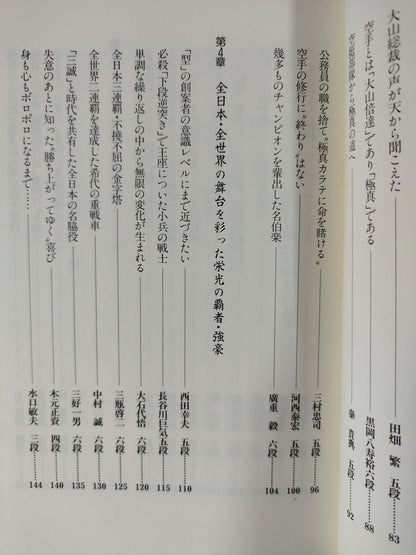 大山総裁の声が天から聞こえた………田畑　繁　五段………83
空手とは「大山倍達」であり「極真」である………黒岡八寿裕六段………88
空挺部隊から極真の道へ………秦　貴典　五段………92
公務員の職を捨て“極真カラテに命を賭ける”………三村忠司　五段………96
空手の修行に“終わり”はない………河西泰宏　五段………100
幾多ものチャンピオンを輩出した名伯楽………廣重　毅　六段………104
第4章　全日本・全世界の舞台を彩った栄光の覇者・強豪
「型」の創案者の意識レベルにまで近づきたい………西田幸夫　五段………110
必殺「下段逆突き」で王座についた小兵の戦士………長谷川巨気五段………115
単調な繰り返しの中から無限の変化が生まれる………大石代悟　六段………120
全日本三連覇・不撓不屈の金字塔………三瓶啓二　六段………125
全世界二連覇を達成した希代の重戦車………中村　誠　六段………130
「三誠」と時代を共有した全日本の名脇役………三好一男　六段………135
失意のあとに知った“勝ち上がってゆく”喜び………木元正資　四段………140
身も心もボロボロになるまで……………水口敏夫　三段………144